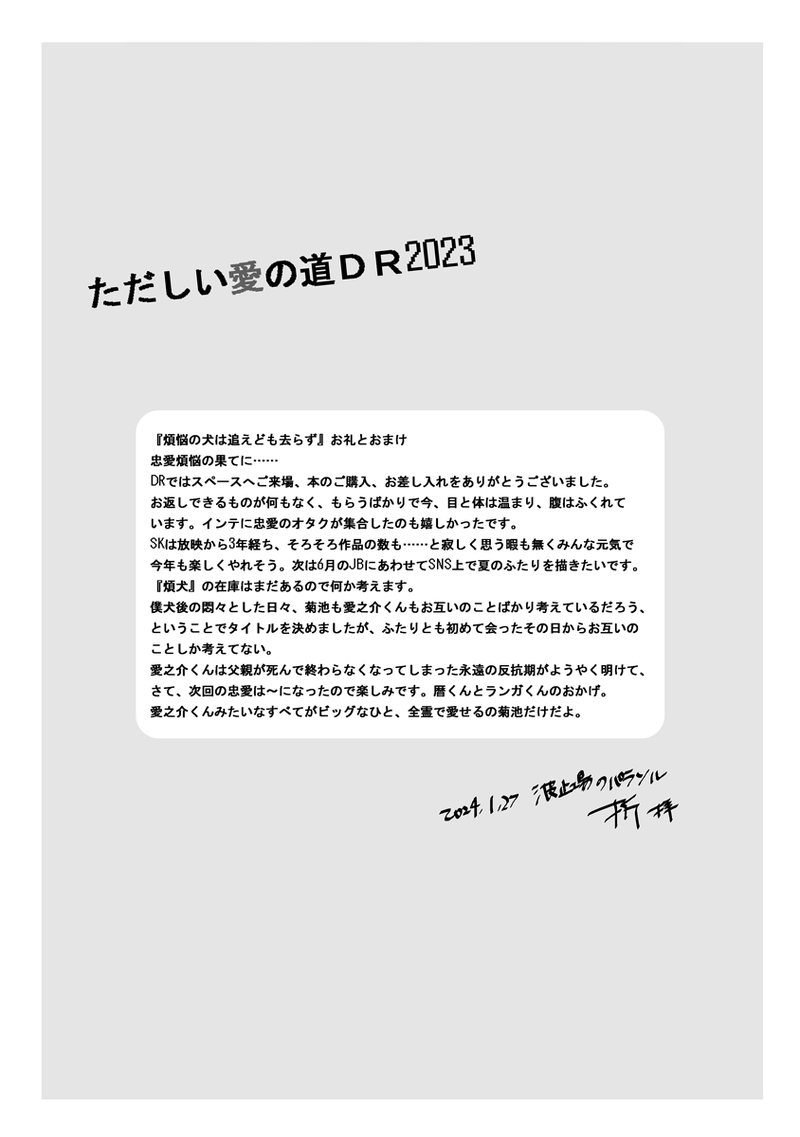 ただしい愛の道ＤＲ2023
『煩悩の犬は追えども去らず』お礼とおまけ
忠愛煩悩の果てに……
DRではスペースへご来場、本のご購入、お差し入れをありがとうございました。
お返しできるものが何もなく、もらうばかりで今、目と体は温まり、腹はふくれて
います。インテに忠愛のオタクが集合したのも嬉しかったです。
SKは放映から3年経ち、そろそろ作品の数も……と寂しく思う暇も無くみんな元気で
今年も楽しくやれそう。次は6月のJBにあわせてSNS上で夏のふたりを描きたいです。
『煩犬』の在庫はまだあるので何か考えます。
僕犬後の悶々とした日々、菊池も愛之介くんもお互いのことばかり考えているだろう、
ということでタイトルを決めましたが、ふたりとも初めて会ったその日からお互いの
ことしか考えてない。
愛之介くんは父親が死んで終わらなくなってしまった永遠の反抗期がようやく明けて、
さて、次回の忠愛は～になったので楽しみです。暦くんとランガくんのおかげ。
愛之介くんみたいなすべてがビッグなひと、全霊で愛せるの菊池だけだよ。
2024.1.27 波止場のパラソル
拝